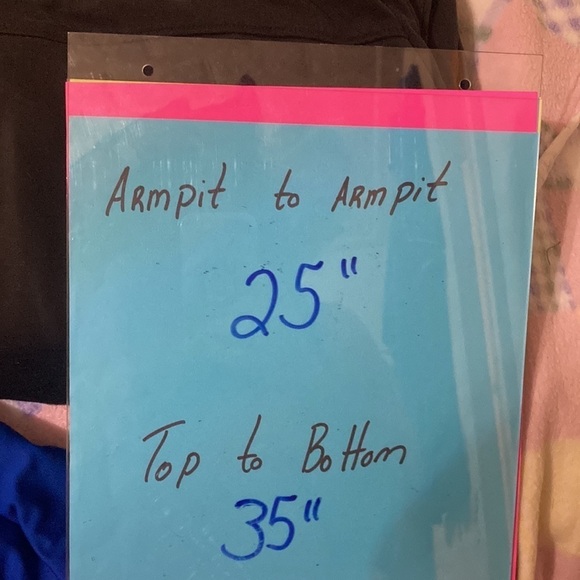 Armpit to Armpit
25"
Top to Bottom
35"